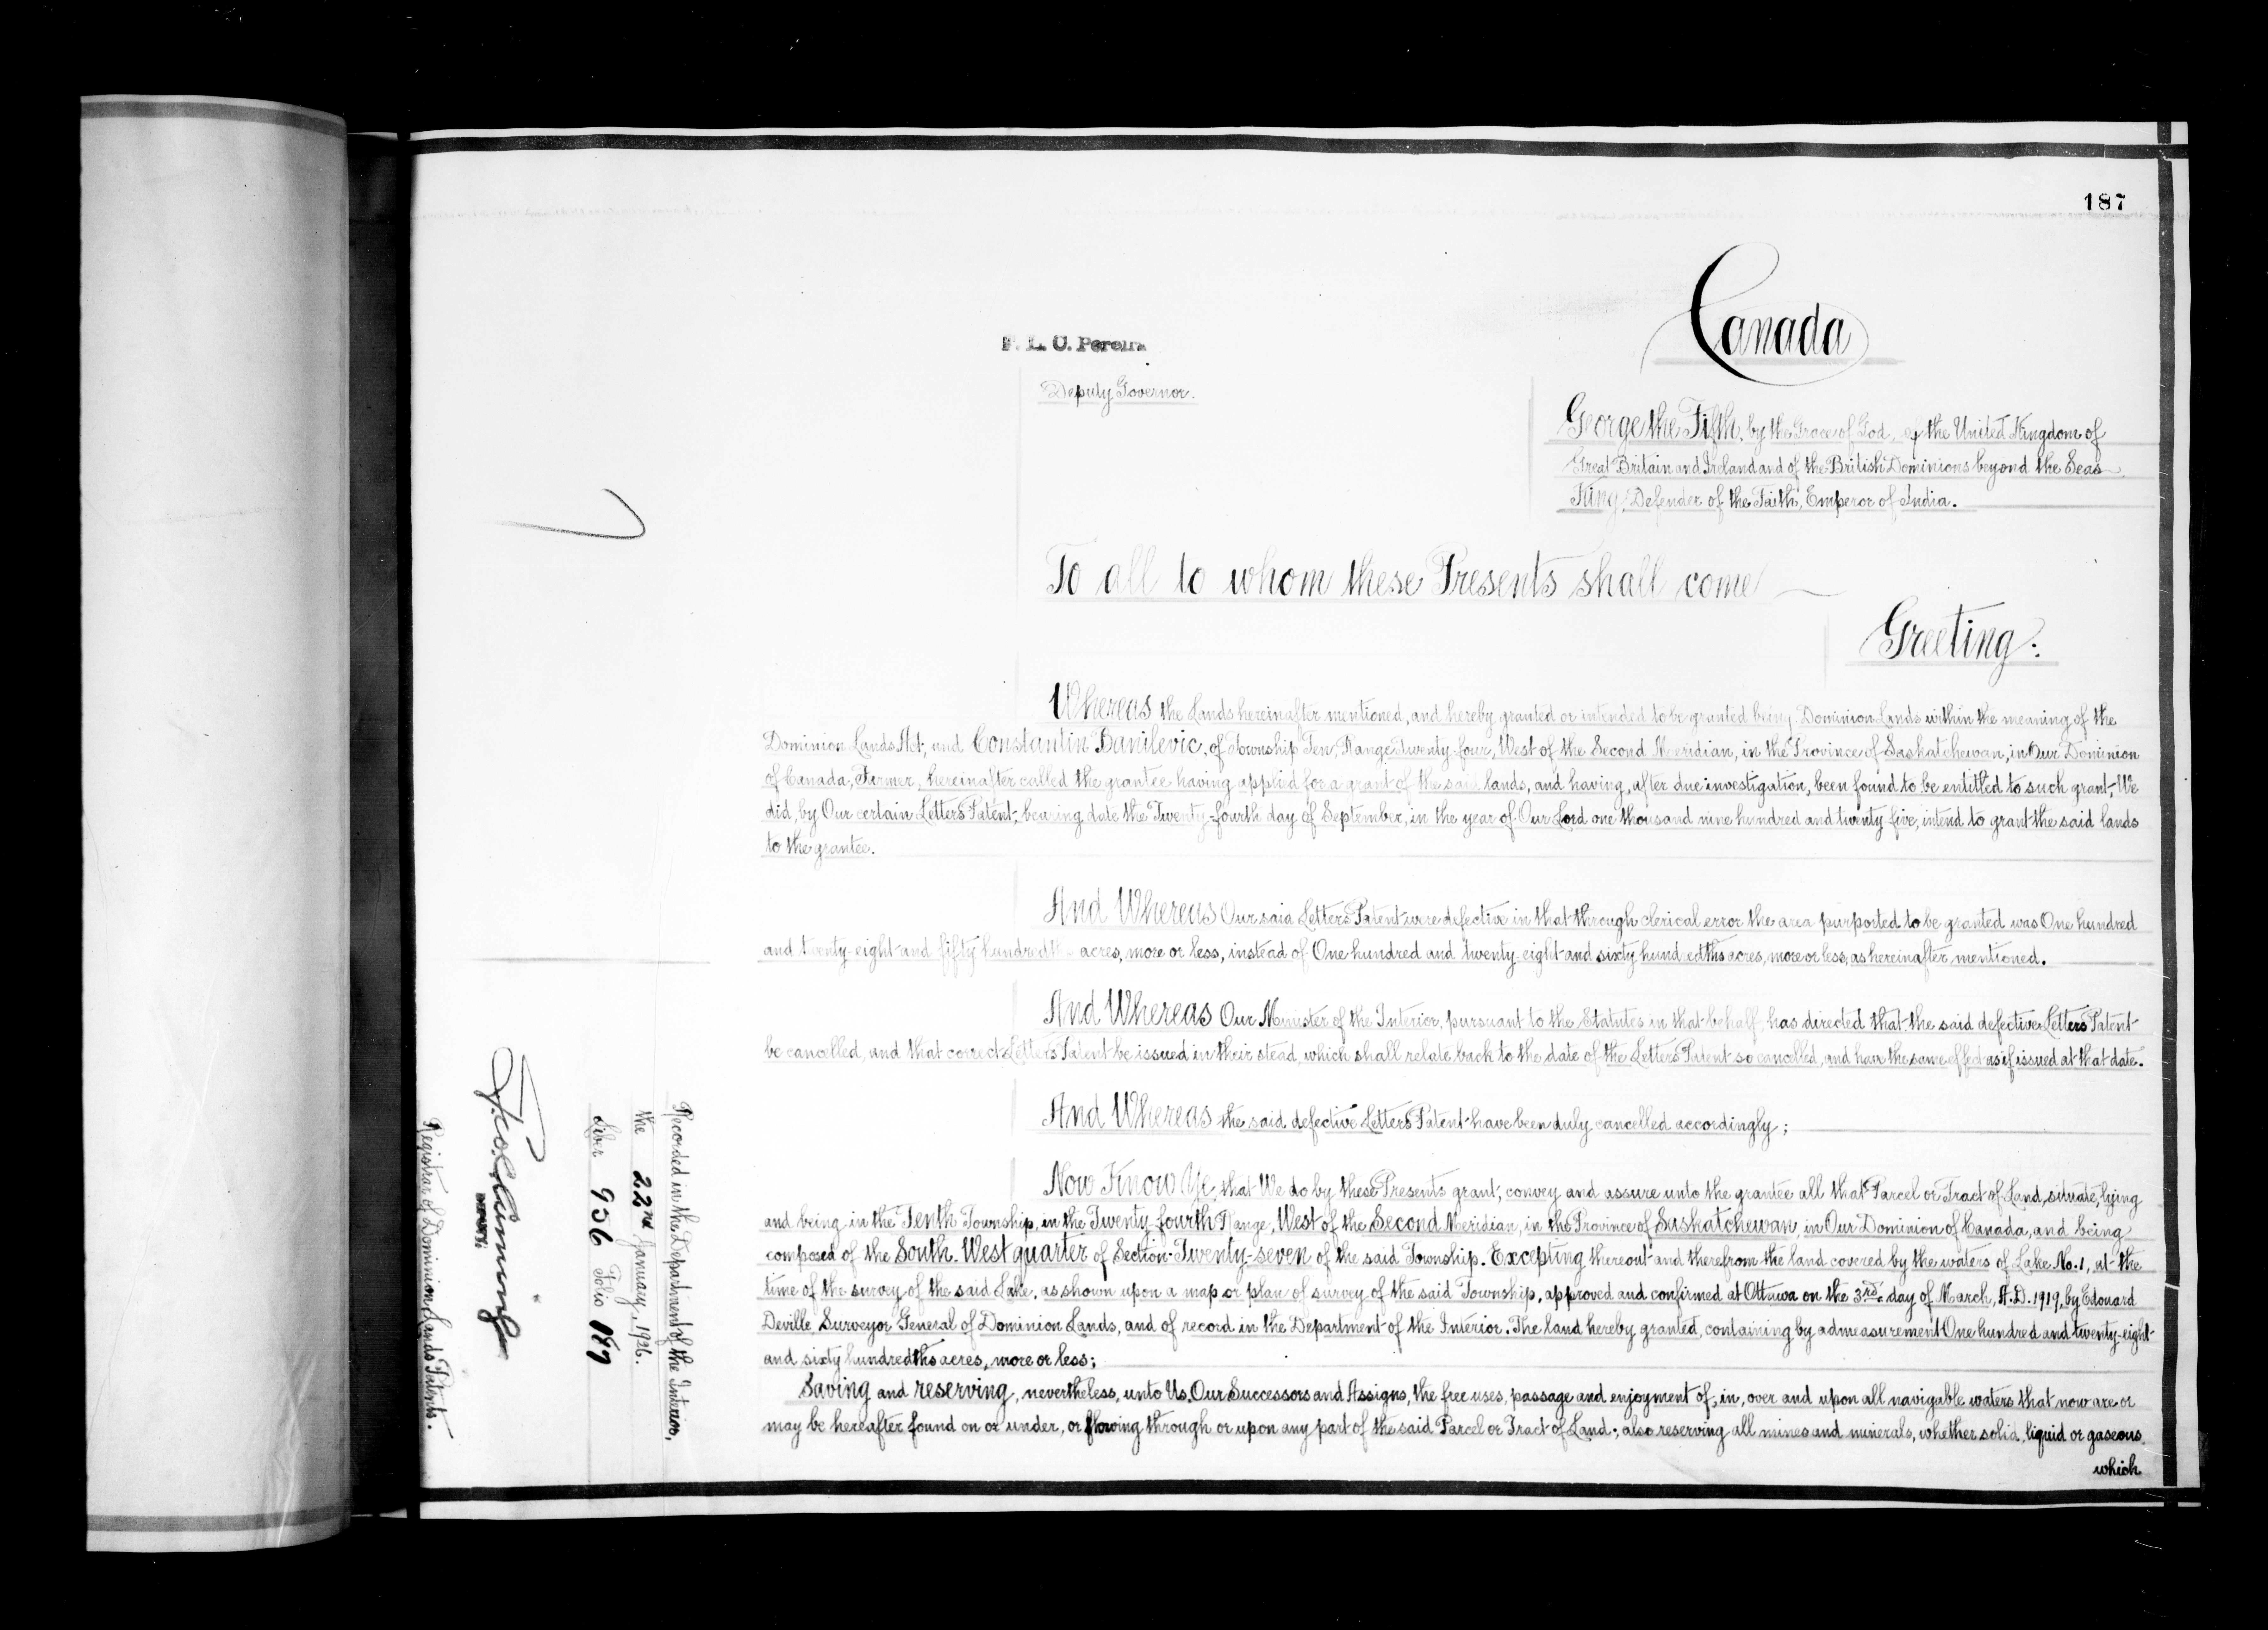 187
Canada
F. L. C. Pereira
Deputy Governor.
George the Fifth, by the Grace of God, of the United Kingdom of
Great Britain and Ireland and of the British Dominions beyond the Seas
King, Defender of the Faith, Emperor of India.
To all to whom these Presents shall come
Greeting:
Whereas the Lands hereinafter mentioned, and hereby granted or intended to be granted being Dominion Lands within the meaning of the
Dominion Lands Act, and Constantin Banilevic, of Township Ten, Range Twenty-four, West of the Second Meridian, in the Province of Saskatchewan, in Our Dominion
of Canada, Farmer, hereinafter called the grantee having applied for a grant of the said lands, and having, after due investigation, been found to be entitled to such grant, We
did, by Our certain Letters Patent, bearing date the Twenty-fourth day of September, in the year of Our Lord one thousand nine hundred and twenty five, intend to grant the said lands
to the grantee.
And Whereas Our said Letters Patent were defective in that through clerical error the area purported to be granted was One hundred
and twenty-eight and fifty hundredths acres, more or less, instead of One hundred and twenty-eight and sixty hundredths acres, more or less, as hereinafter mentioned.
And Whereas Our Minister of the Interior, pursuant to the Statutes in that behalf, has directed that the said defective Letters Patent
be cancelled, and that correct Letters Patent be issued in their stead, which shall relate back to the date of the Letters Patent so cancelled, and have the same effect as if issued at that date.
And Whereas the said defective Letters Patent have been duly cancelled accordingly;
Now Know Ye, that We do by these Presents grant, convey and assure unto the grantee all that Parcel or Tract of Land, situate, lying
and being in the Tenth Township, in the Twenty fourth Range, West of the Second Meridian, in the Province of Saskatchewan, in Our Dominion of Canada, and being
composed of the South-West quarter of Section Twenty-seven of the said Township. Excepting thereout and therefrom the land covered by the waters of Lake No. 1, at the
time of the survey of the said Lake, as shown upon a map or plan of survey of the said Township, approved and confirmed at Ottawa on the 3rd. day of March, A.D. 1919, by Edouard
Deville, Surveyor General of Dominion Lands, and of record in the Department of the Interior. The land hereby granted, containing by admeasurement One hundred and twenty-eight
and sixty hundredths acres, more or less;
Saving and reserving, nevertheless, unto Us, Our Successors and Assigns, the free uses, passage and enjoyment of, in, over and upon all navigable waters that now are or
may be hereafter found on or under, or flowing through or upon any part of the said Parcel or Tract of Land; also reserving all mines and minerals, whether solid, liquid or gaseous
which
Recorded in the Department of the Interior,
the 22nd January, 1926.
Liber 956 Folio 187
Registrar of Dominion Lands Patents.